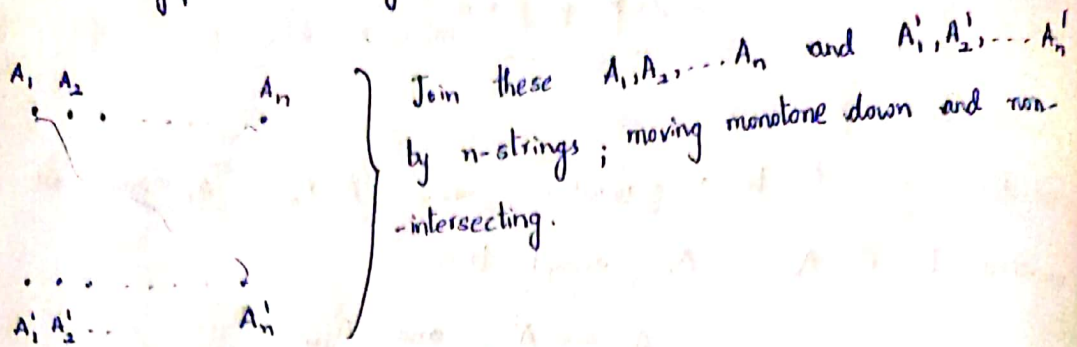 A₁ A₂ Aₙ
Join these A₁, A₂, ... Aₙ and A₁', A₂', ... Aₙ'
by n-strings ; moving monotone down and non-
-intersecting.
A₁' A₂' .. Aₙ'